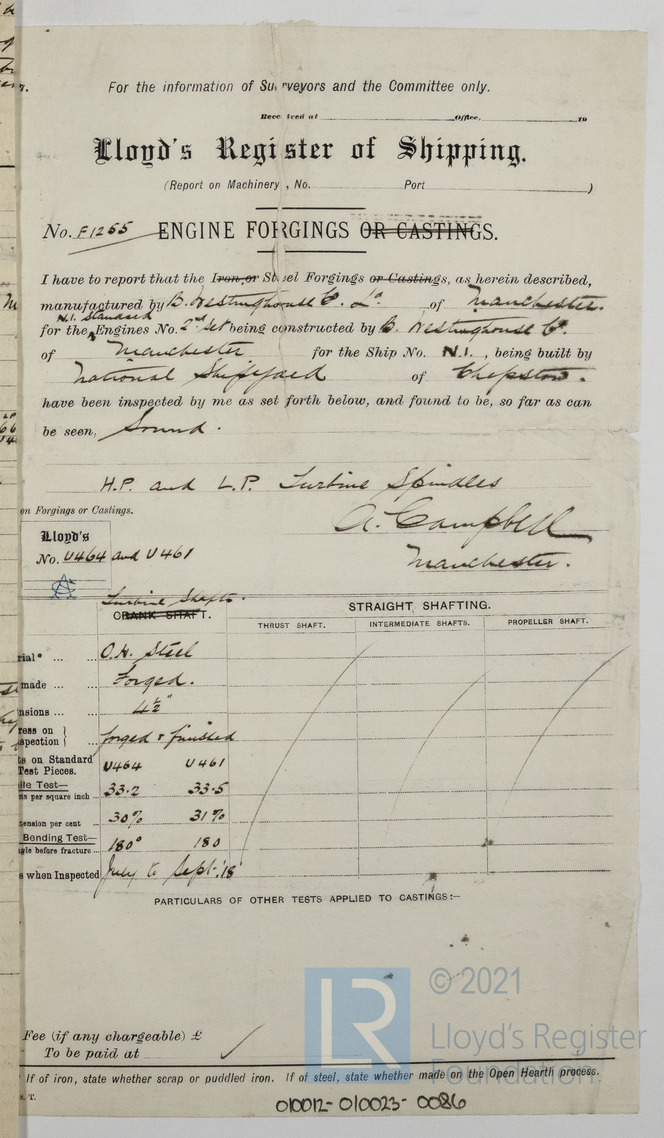 For the information of Surveyors and the Committee only.
Received at Office, 19
Lloyd's Register of Shipping.
(Report on Machinery, No. Port )
No. F1255 ENGINE FORGINGS OR CASTINGS.
I have to report that the Iron or Steel Forgings or Castings, as herein described,
manufactured by B. Westinghouse Co. Ld of Manchester.
N.1. Standard
for the Engines No. 2nd Set being constructed by B. Westinghouse Co.
of Manchester for the Ship No. N.1., being built by
National Shipyard of Chepstow.
have been inspected by me as set forth below, and found to be, so far as can
be seen, Sound.
H.P. and L.P. Turbine Spindles
on Forgings or Castings.
A. Campbell
Lloyd's
No. U464 and U461
Manchester.
Turbine Shafts.
CRANK SHAFT.
STRAIGHT SHAFTING.
THRUST SHAFT. INTERMEDIATE SHAFTS. PROPELLER SHAFT.
rial* ... ... O.H. Steel
made ... ... Forged.
nsions ... ... 4½"
ress on
spection ... forged & finished
ts on Standard
Test Pieces. U464 U461
ile Test—
ns per square inch ... 33.2 33.5
tension per cent ... 30% 31%
Bending Test—
gle before fracture ... 180° 180
s when Inspected July to Sept. '18
PARTICULARS OF OTHER TESTS APPLIED TO CASTINGS:—
© 2021
LR
Lloyd's Register
Foundation
Fee (if any chargeable) £
To be paid at
If of iron, state whether scrap or puddled iron. If of steel, state whether made on the Open Hearth process.
S. T.
010012-010023-0086